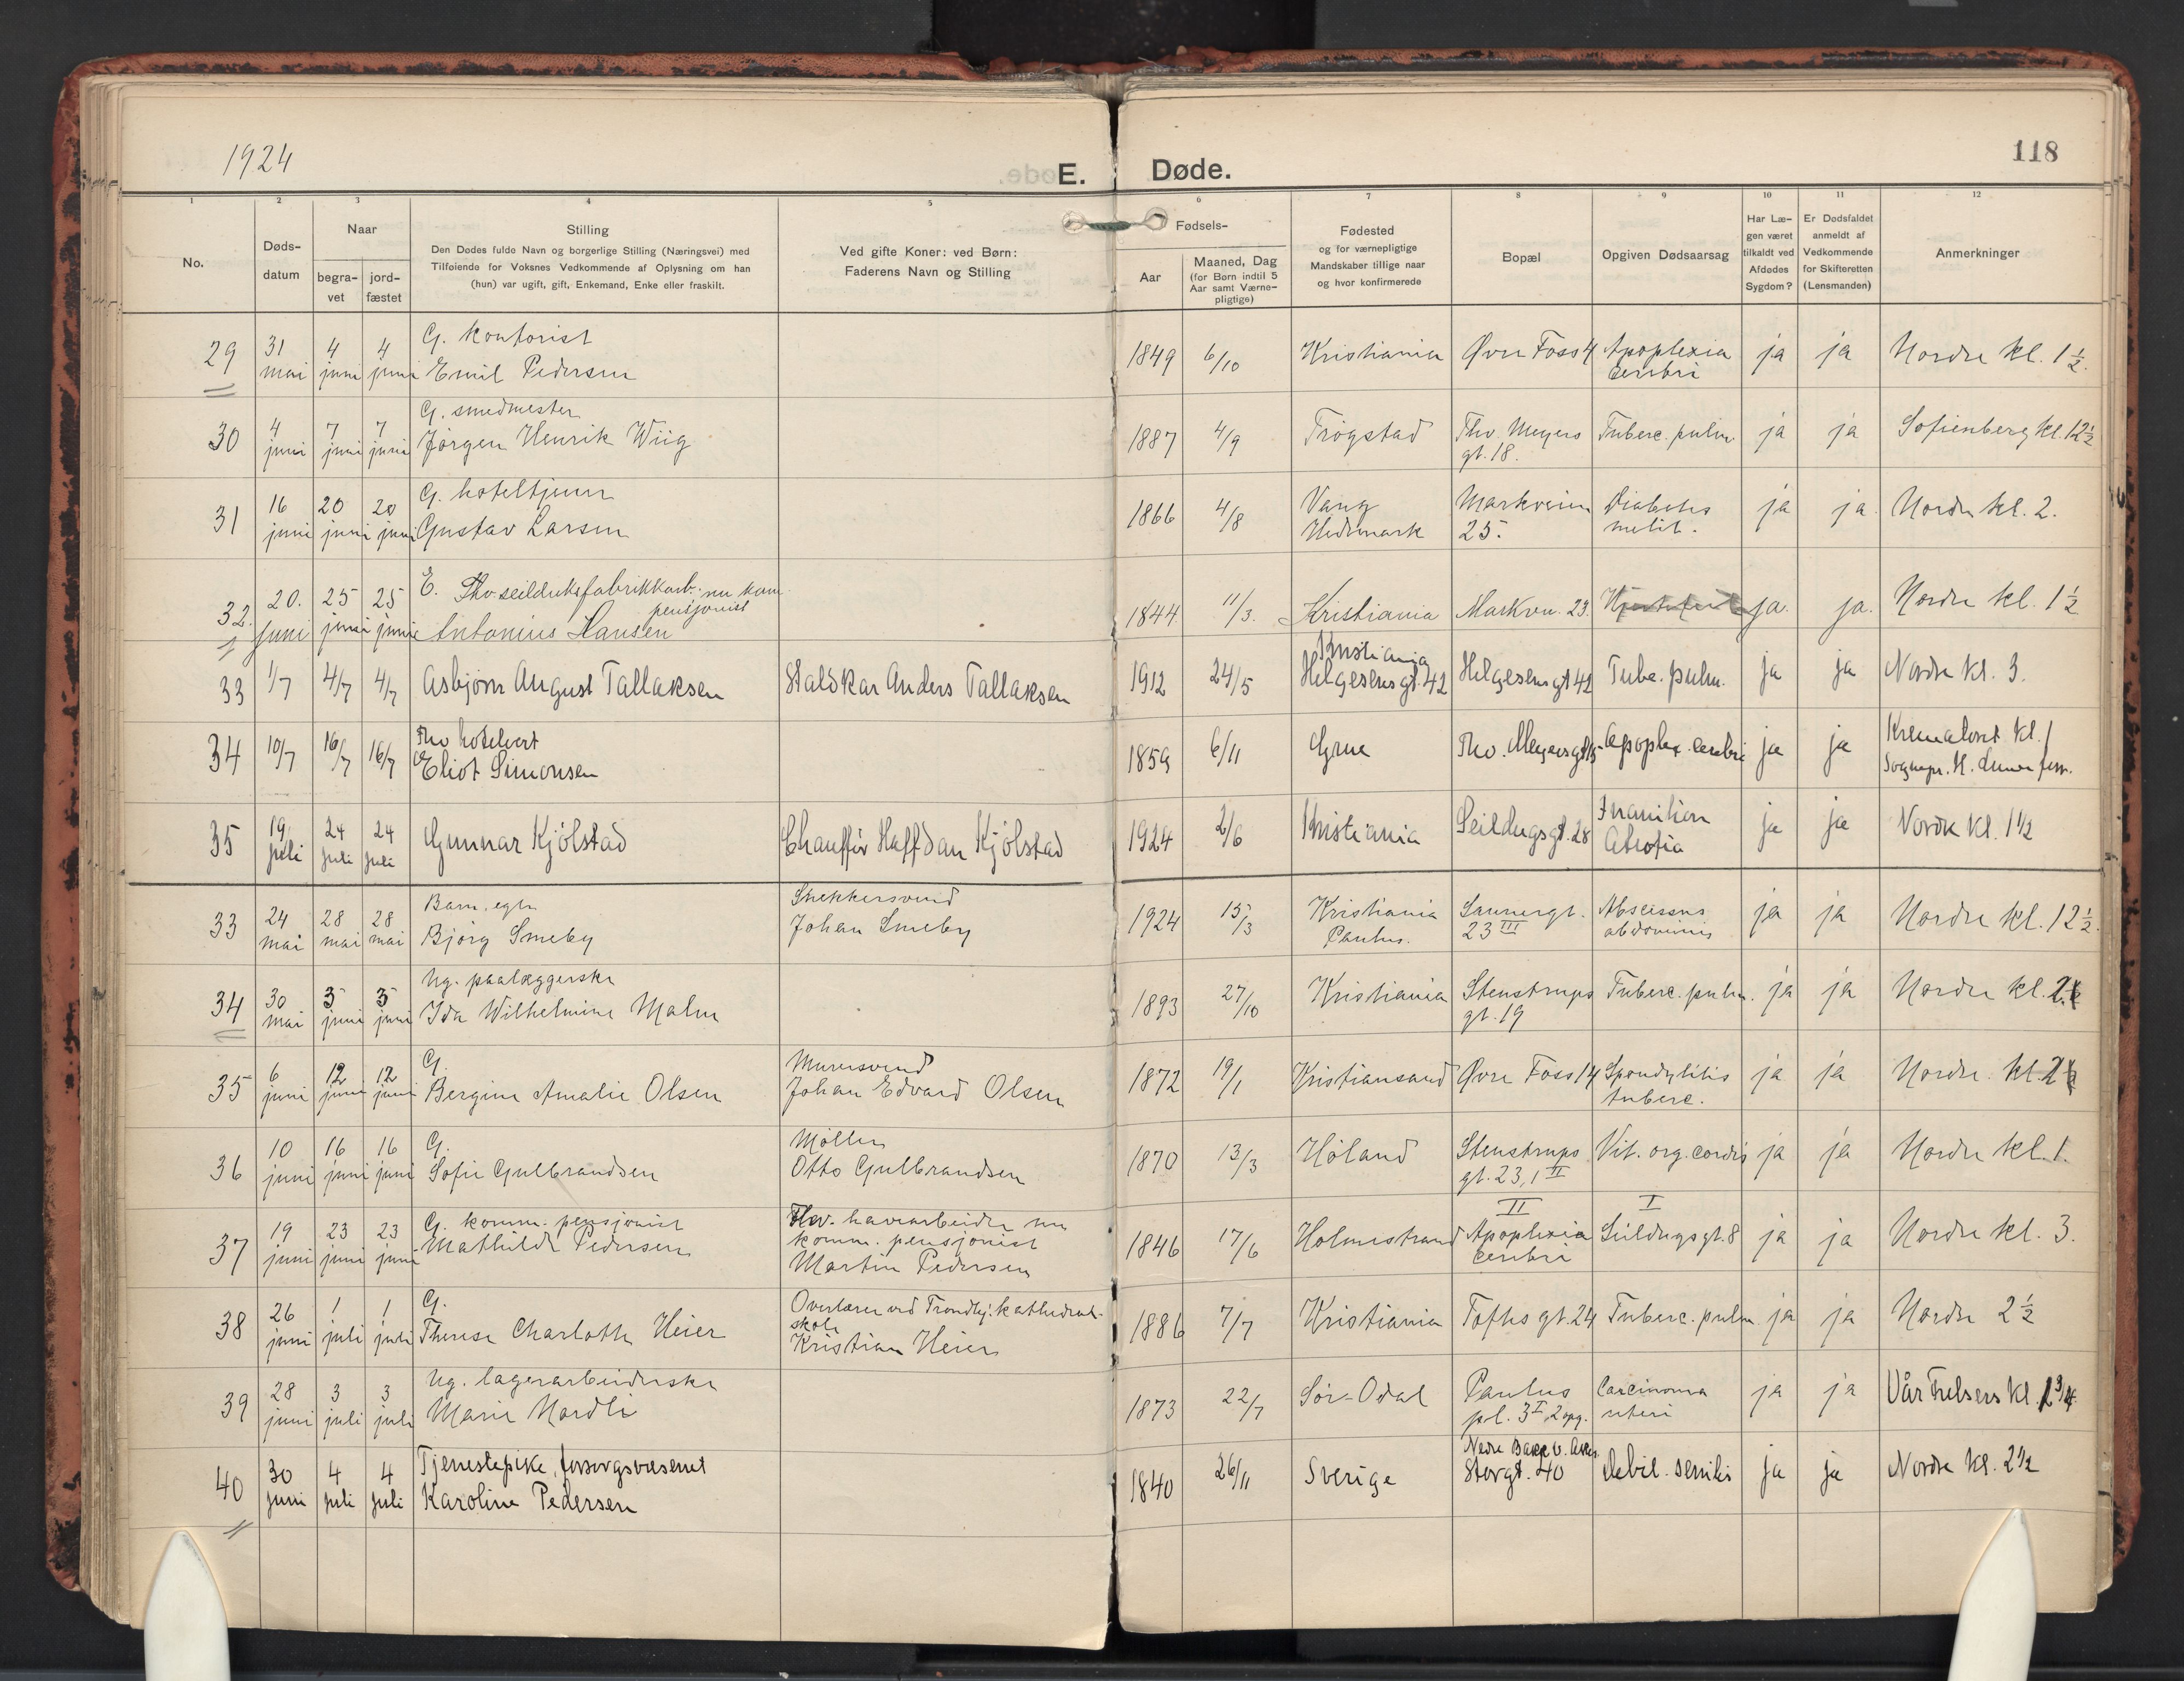 1924
E. Døde.
118
1 2 3 4 5 6 7 8 9 10 11 12
No.
Døds-
datum
Naar
begra-
vet
jord-
fæstet
Stilling
Den Dødes fulde Navn og borgerlige Stilling (Næringsvei) med
Tilføiende for Voksnes Vedkommende af Oplysning om han
(hun) var ugift, gift, Enkemand, Enke eller fraskilt.
Ved gifte Koner: ved Børn:
Faderens Navn og Stilling
Fødsels-
Aar
Maaned, Dag
(for Børn indtil 5
Aar samt Værne-
pligtige)
Fødested
og for værnepligtige
Mandskaber tillige naar
og hvor konfirmerede
Bopæl
Opgiven Dødsaarsag
Har Læ-
gen været
tilkaldt ved
Afdødes
Sygdom?
Er Dødsfaldet
anmeldt af
Vedkommende
for Skifteretten
(Lensmanden)
Anmerkninger
29 31 mai 4 juni 4 juni G. kontorist
Emil Pedersen 1849 6/10 Kristiania Øvre Foss 4 Apoplexia cerebri ja ja Nordre kl. 1 1/2.
30 4 juni 7 juni 7 juni G. smedmester
Jørgen Henrik Wiig 1887 4/9 Trøgstad Thv. Meyers gt. 18. Tuberc. pulm. ja ja Sofienberg kl. 12 1/2
31 16 juni 20 juni 20 juni G. hoteltjener
Gustav Larsen 1866 4/8 Vang Hedemark Markveien 25. Diabetes melit. ja ja. Nordre kl. 2.
32. 20. juni 25 juni 25 juni E. Fhv. seilduksfabrikkarb. nu kom
pensjonist
Antonius Hansen 1844 11/3. Kristiania Markvn. 23. ja. ja. Nordre kl. 1 1/2
33 1/7 4/7 4/7 Asbjørn August Tallaksen Staldkar Anders Tallaksen 1912 24/5 Kristiania Helgesens gt. 42 Helgesens gt 42 Tube. pulm. ja ja Nordre kl. 3.
34 10/7 16/7 16/7 Fhv hotelvert
Eliot Simonsen 1859 6/11 Grue Thv. Meyersgt 15 Apoplex. cerebri ja ja Krematoriet kl. 1
Sognepr. H.
35 19 juli 24 juli 24 juli Gunnar Kjölstad Chauffør Halfdan Kjölstad 1924 2/6 Kristiania Seildugsgt. 28 Inanition Atrofia ja ja Nordre kl. 1 1/2
33 24 mai 28 mai 28 mai Barn, egte
Bjørg Smeby Snekkersvend
Johan Smeby 1924 15/3 Kristiania Paulus. Sannergt. 23 III Abscessus abdominis ja ja Nordre kl. 12 1/2.
34 30 mai 5 juni 5 juni Ug. paalæggerske
Ida Wilhelmine Malm 1893 27/10 Kristiania Stenstrups gt. 19 Tuberc. pulm. ja ja Nordre kl. 2
35 6 juni 12 juni 12 juni G.
Bergine Amalie Olsen Murersvend
Johan Edvard Olsen 1872 19/1 Kristiansand Øvre Foss 14 Spondylitis tuberc. ja ja Nordre kl. 2
36 10 juni 16 juni 16 juni G.
Sofie Gulbrandsen Møller
Otto Gulbrandsen 1870 13/3 Høland Stenstrups gt. 23, 1 II Vit. org. cordis ja ja Nordre kl. 1.
37 19 juni 23 juni 23 juni G. komm. pensjonist
Mathilde Pedersen Fhv. havnearbeider nu
komm. pensjonist
Martin Pedersen 1846 17/6 Holmestrand II Apoplexia cerebri I Seildugsgt. 8 ja ja Nordre kl. 3.
38 26 juni 1 juli 1 juli G.
Therese Charlotte Heier Overlærer ved Trondhj. kathedral-
skole
Kristian Heier 1886 7/7 Kristiania Toftes gt. 24 Tuberc. pulm. ja ja Nordre 2 1/2
39 28 juni 3 juli 3 juli Ug. lagerarbeiderske
Marie Nordli 1873 22/7 Sør-Odal Paulus pl. 3 I, 2 opg. Carcinoma uteri ja ja Vår Frelsers kl. 1 3/4
40 30 juni 4 juli 4 juli Tjenestepike, forsorgsvesenet
Karoline Pedersen 1840 26/11 Sverige Nedre
Storgt. 40 Debil. senilis ja ja Nordre kl. 2 1/2